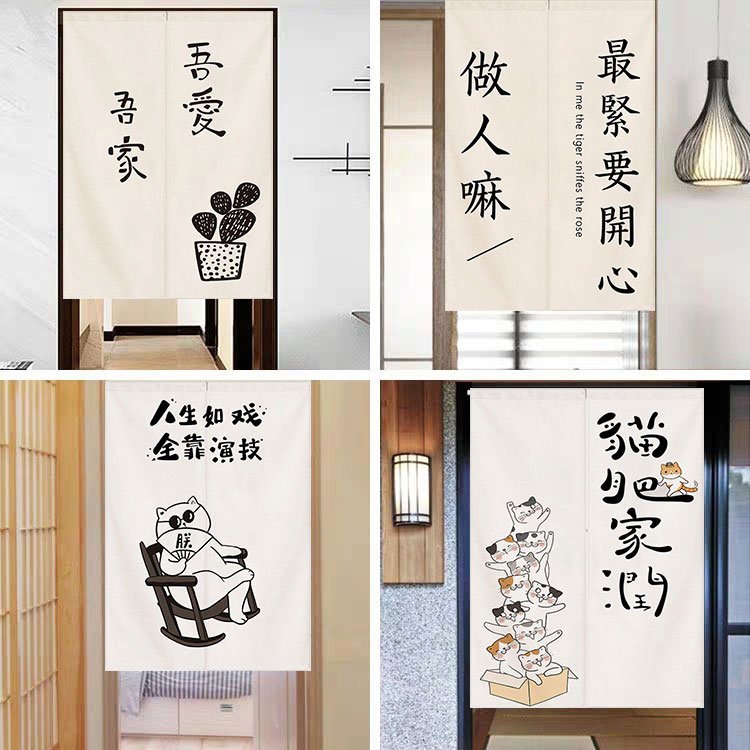 吾愛
吾家
最緊要開心
In me the tiger sniffes the rose
做人嘛/
人生如戏
全靠演技
朕
貓肥家潤